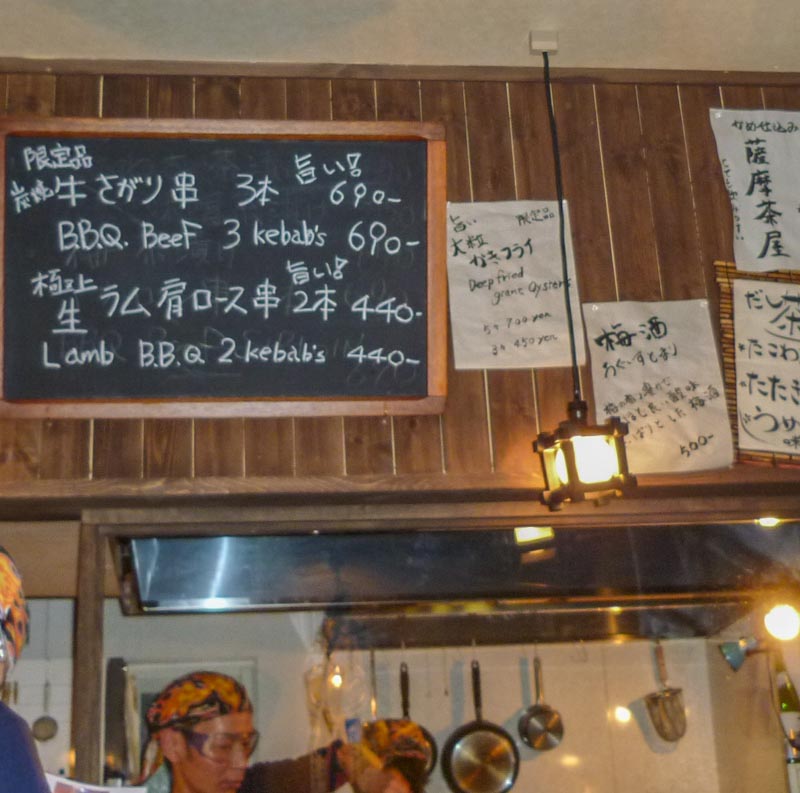 限定品
炭焼 牛さがり串 3本 旨い! 690-
B.B.Q. BeeF 3 kebab's 690-
極上
生ラム肩ロース串 2本 旨い! 440-
Lamb B.B.Q 2 kebab's 440-
旨い 限定品
大粒
かきフライ
Deep fried
giant Oysters
5ヶ 700 yen.
3ヶ 450 yen.
梅酒
500-
薩摩茶屋
だし茶
たこわ
たたき
うめ